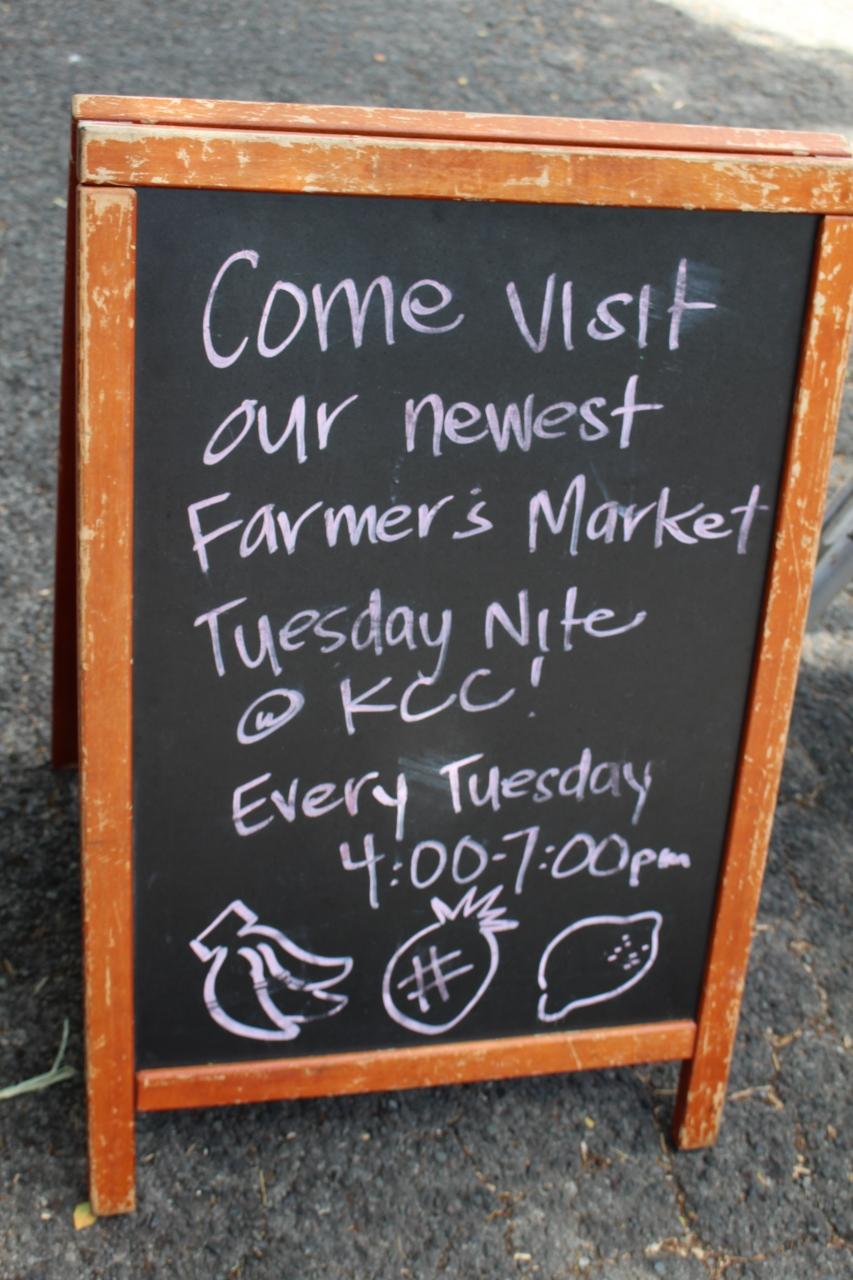 Come visit
our newest
Farmer's Market
Tuesday Nite
@ KCC!
Every Tuesday
4:00-7:00pm